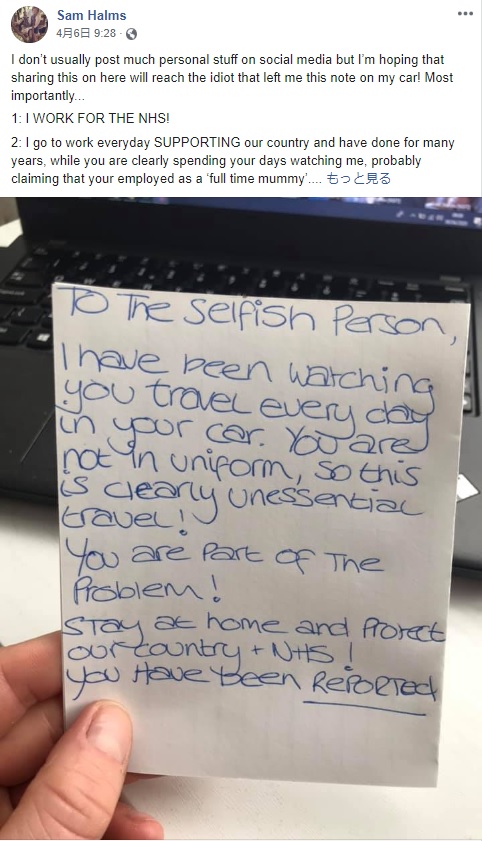 Sam Halms
4月6日 9:28 ·
I don't usually post much personal stuff on social media but I'm hoping that
sharing this on here will reach the idiot that left me this note on my car! Most
importantly...
1: I WORK FOR THE NHS!
2: I go to work everyday SUPPORTING our country and have done for many
years, while you are clearly spending your days watching me, probably
claiming that your employed as a 'full time mummy'.... もっと見る
To The Selfish Person,
I have been watching
you travel every day
in your car. You are
not in uniform, so this
is clearly unessential
travel!
You are Part of The
Problem!
Stay at home and Protect
our country + NHS!
You Have been REPORTED